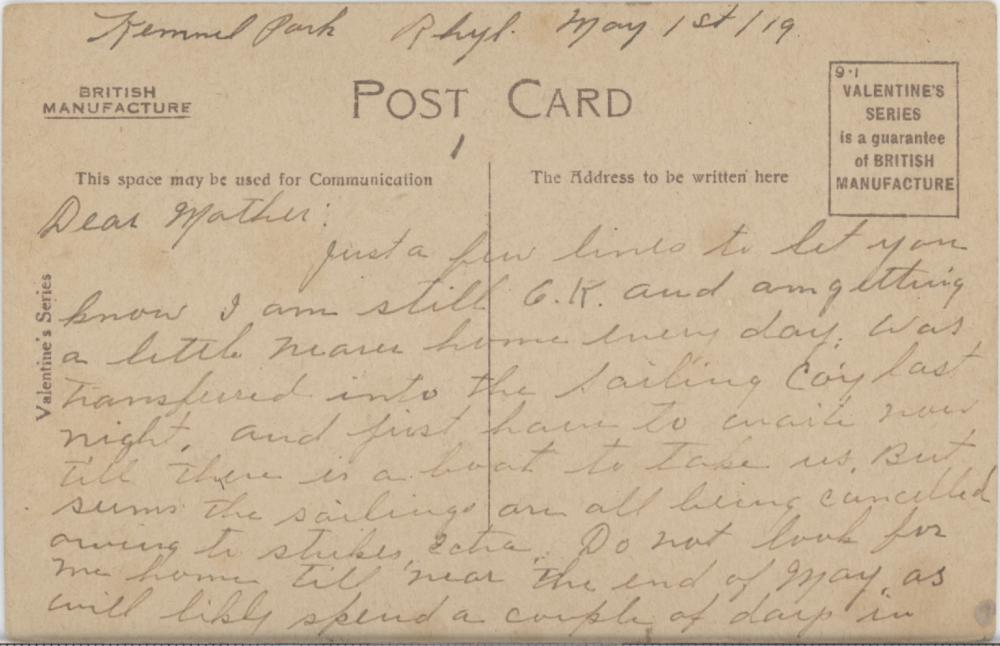 Kemmel Park Rhyl. May 1st/19
BRITISH
MANUFACTURE
POST CARD
1
9.1
VALENTINE'S
SERIES
is a guarantee
of BRITISH
MANUFACTURE
This space may be used for Communication
The Address to be written here
Valentine's Series
Dear Mother:
Just a few lines to let you
know I am still O.K. and am getting
a little nearer home every day. Was
transferred into the Sailing Coy last
night, and just have to wait now
till there is a boat to take us. But
seems the sailings are all being cancelled
owing to strikes, ectra. Do not look for
me home till near the end of May, as
will likly spend a couple of days in